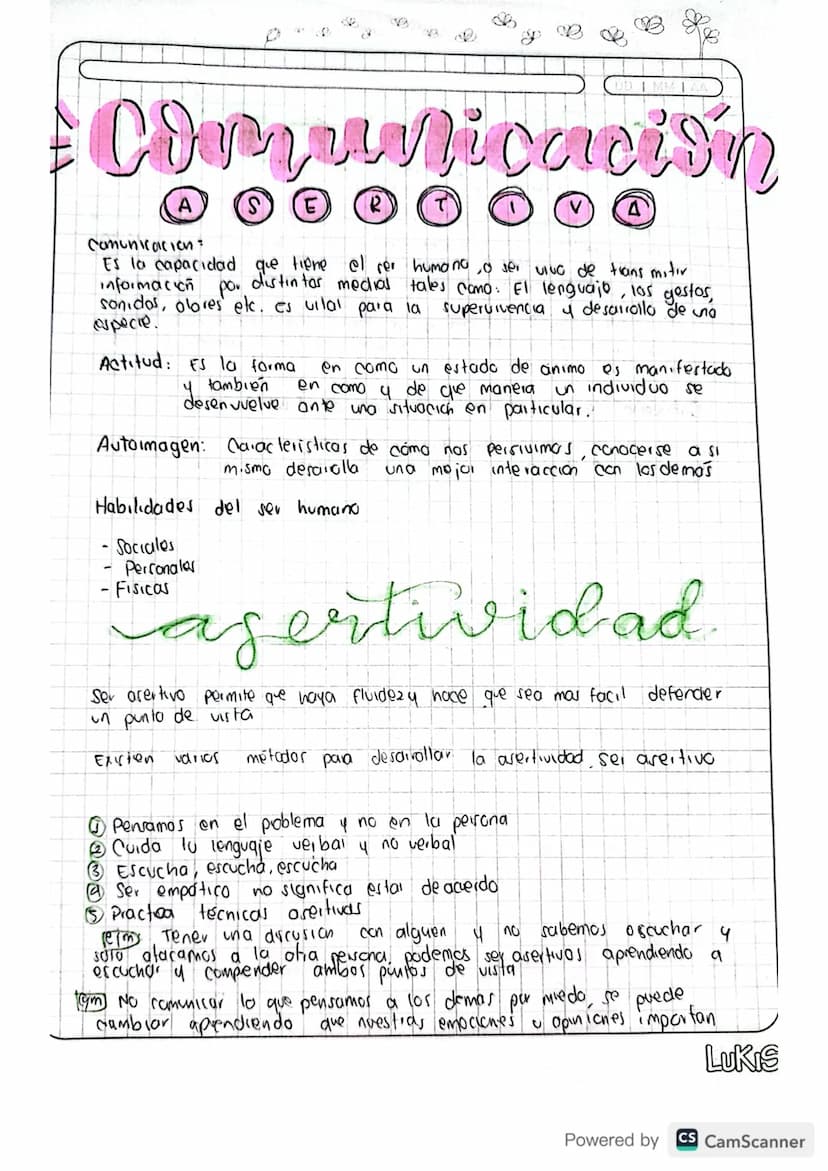 DD | MM | AA
Comunicación
ASERTIVA
Comunicacion:
Es la capacidad que tiene el ser humano, o ser vivo de transmitir
información por distintos medios tales como: El lenguaje, los gestos,
sonidos, olores etc. es vital para la supervivencia y desarrollo de una
especie.
Actitud: Es la forma en como un estado de ánimo es manifestado
y también en como y de que manera un individuo se
desenvuelve ante una situación en particular.
Autoimagen: Características de cómo nos persivimos, conocerse a si
mismo desarolla una mejor interacción con los demás
Habilidades del ser humano
- Sociales
- Personales
- Fisicas
asertividad
Ser asertivo permite que haya fluidez y hace que sea mas facil defender
un punto de vista
Existen varios métodos para desarrollar la asertividad, ser asertivo
① Pensamos en el problema y no en la persona
② Cuida tu lenguaje verbal y no verbal
③ Escucha, escucha, escucha
④ Ser empático no significa estar de acuerdo
⑤ Practica técnicas asertivas
Ejm Tener una discusion con alguien y no sabemos escuchar y
solo atacamos a la otra persona, podemos ser asertivos aprendiendo a
escuchar y compender ambos puntos de vista
Ejm No comunicar lo que pensamos a los demas por miedo, se puede
cambiar aprendiendo que nuestras emociones u opiniones importan
LUKIS
Powered by CS CamScanner